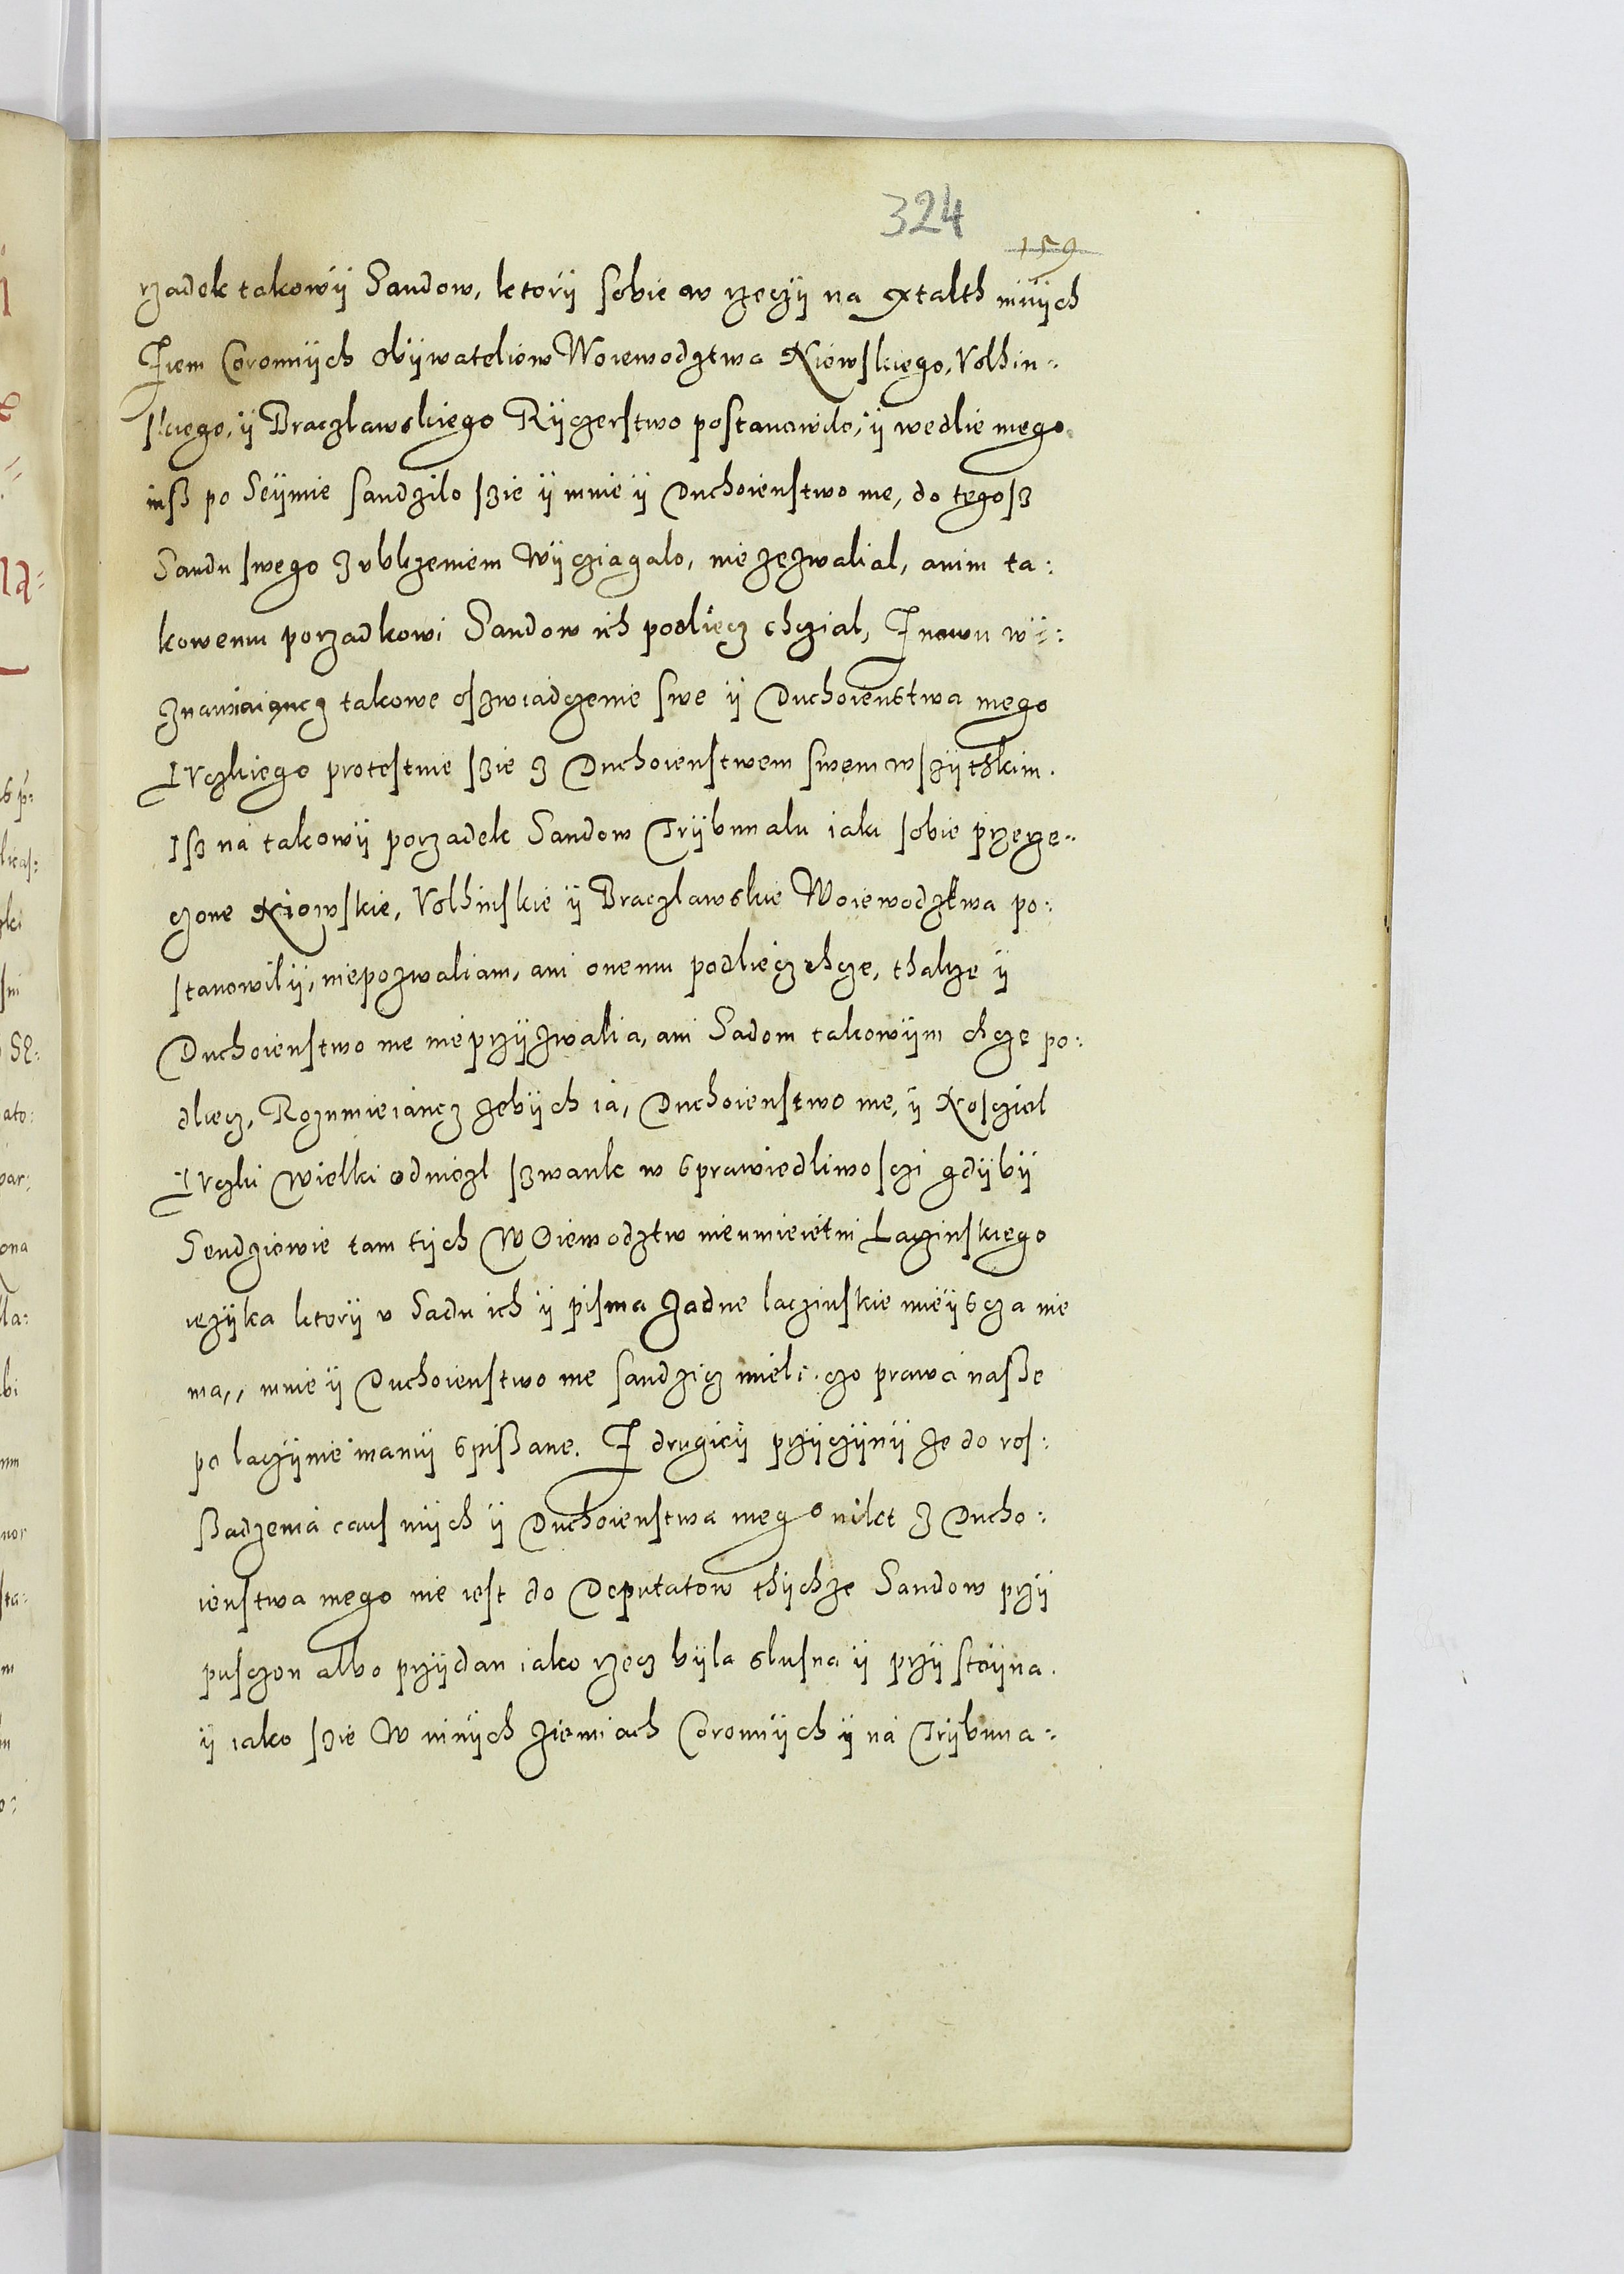 324
159
rzadek takowÿ Sandow, ktorÿ sobie w rzeczÿ na xtalth innÿch
Ziem Coronnÿch Obÿwateliow Woiewodztwa Kiowskiego, Volhin-
skiego, ÿ Braczlawskiego Rÿczerstwo postanowilo, ÿ wedlie niego
insß po Seÿmie sandzilo szie ÿ mnie ÿ Duchoienstwo me, do tegosz
Sandu swego z ublizeniem wÿcziagalo, nie zezwalial, anim ta:
kowemu porzadkowi Sandow ich podliecz chczial, Znowu wi:
znawaiancz takowe oszwiadczenie swe ÿ Duchoienstwa mego
Lvczkiego protestuie szie z Duchoienstwem swem wszÿtskim.
Isz na takowÿ porzadek Sandow Trÿbunalu iaki sobie przerze-
czone Kiowskie, Volhinskie ÿ Braczlawskie Woiewodztwa po:
stanowilÿ, niepozwaliam, ani onemu podliecz chcze, thakze ÿ
Duchoienstwo me nieprzÿzwalia, ani Sadom takowÿm chcze po:
dliecz, Rozumieiancz zebÿch ia, Duchoienstwo me, ÿ Kosczial
Lvczki wielki odniozl szwank w sprawiedliwosczi gdÿbÿ
Sendziowie tam tÿch Woiewodztw nieumieietni Laczinskiego
iezÿka ktorÿ v Sadu ich ÿ pisma zadne laczinskie mieÿscza nie
ma,, mnie ÿ Duchoienstwo me sandzicz mieli. czo prawa nasße
po laczÿnie mamÿ spißane. Z drugieÿ przÿczÿnÿ ze do ros:
ßadzenia caus mÿch ÿ Duchoienstwa mego nikt z Ducho:
ienstwa mego nie iest do Deputatow thÿchze Sandow przÿ
pusczon albo przÿdan iako rzecz bÿla slusna ÿ przÿ stoÿna.
ÿ iako szie w innÿch ziemiach Coronnÿch ÿ na Trÿbuna: